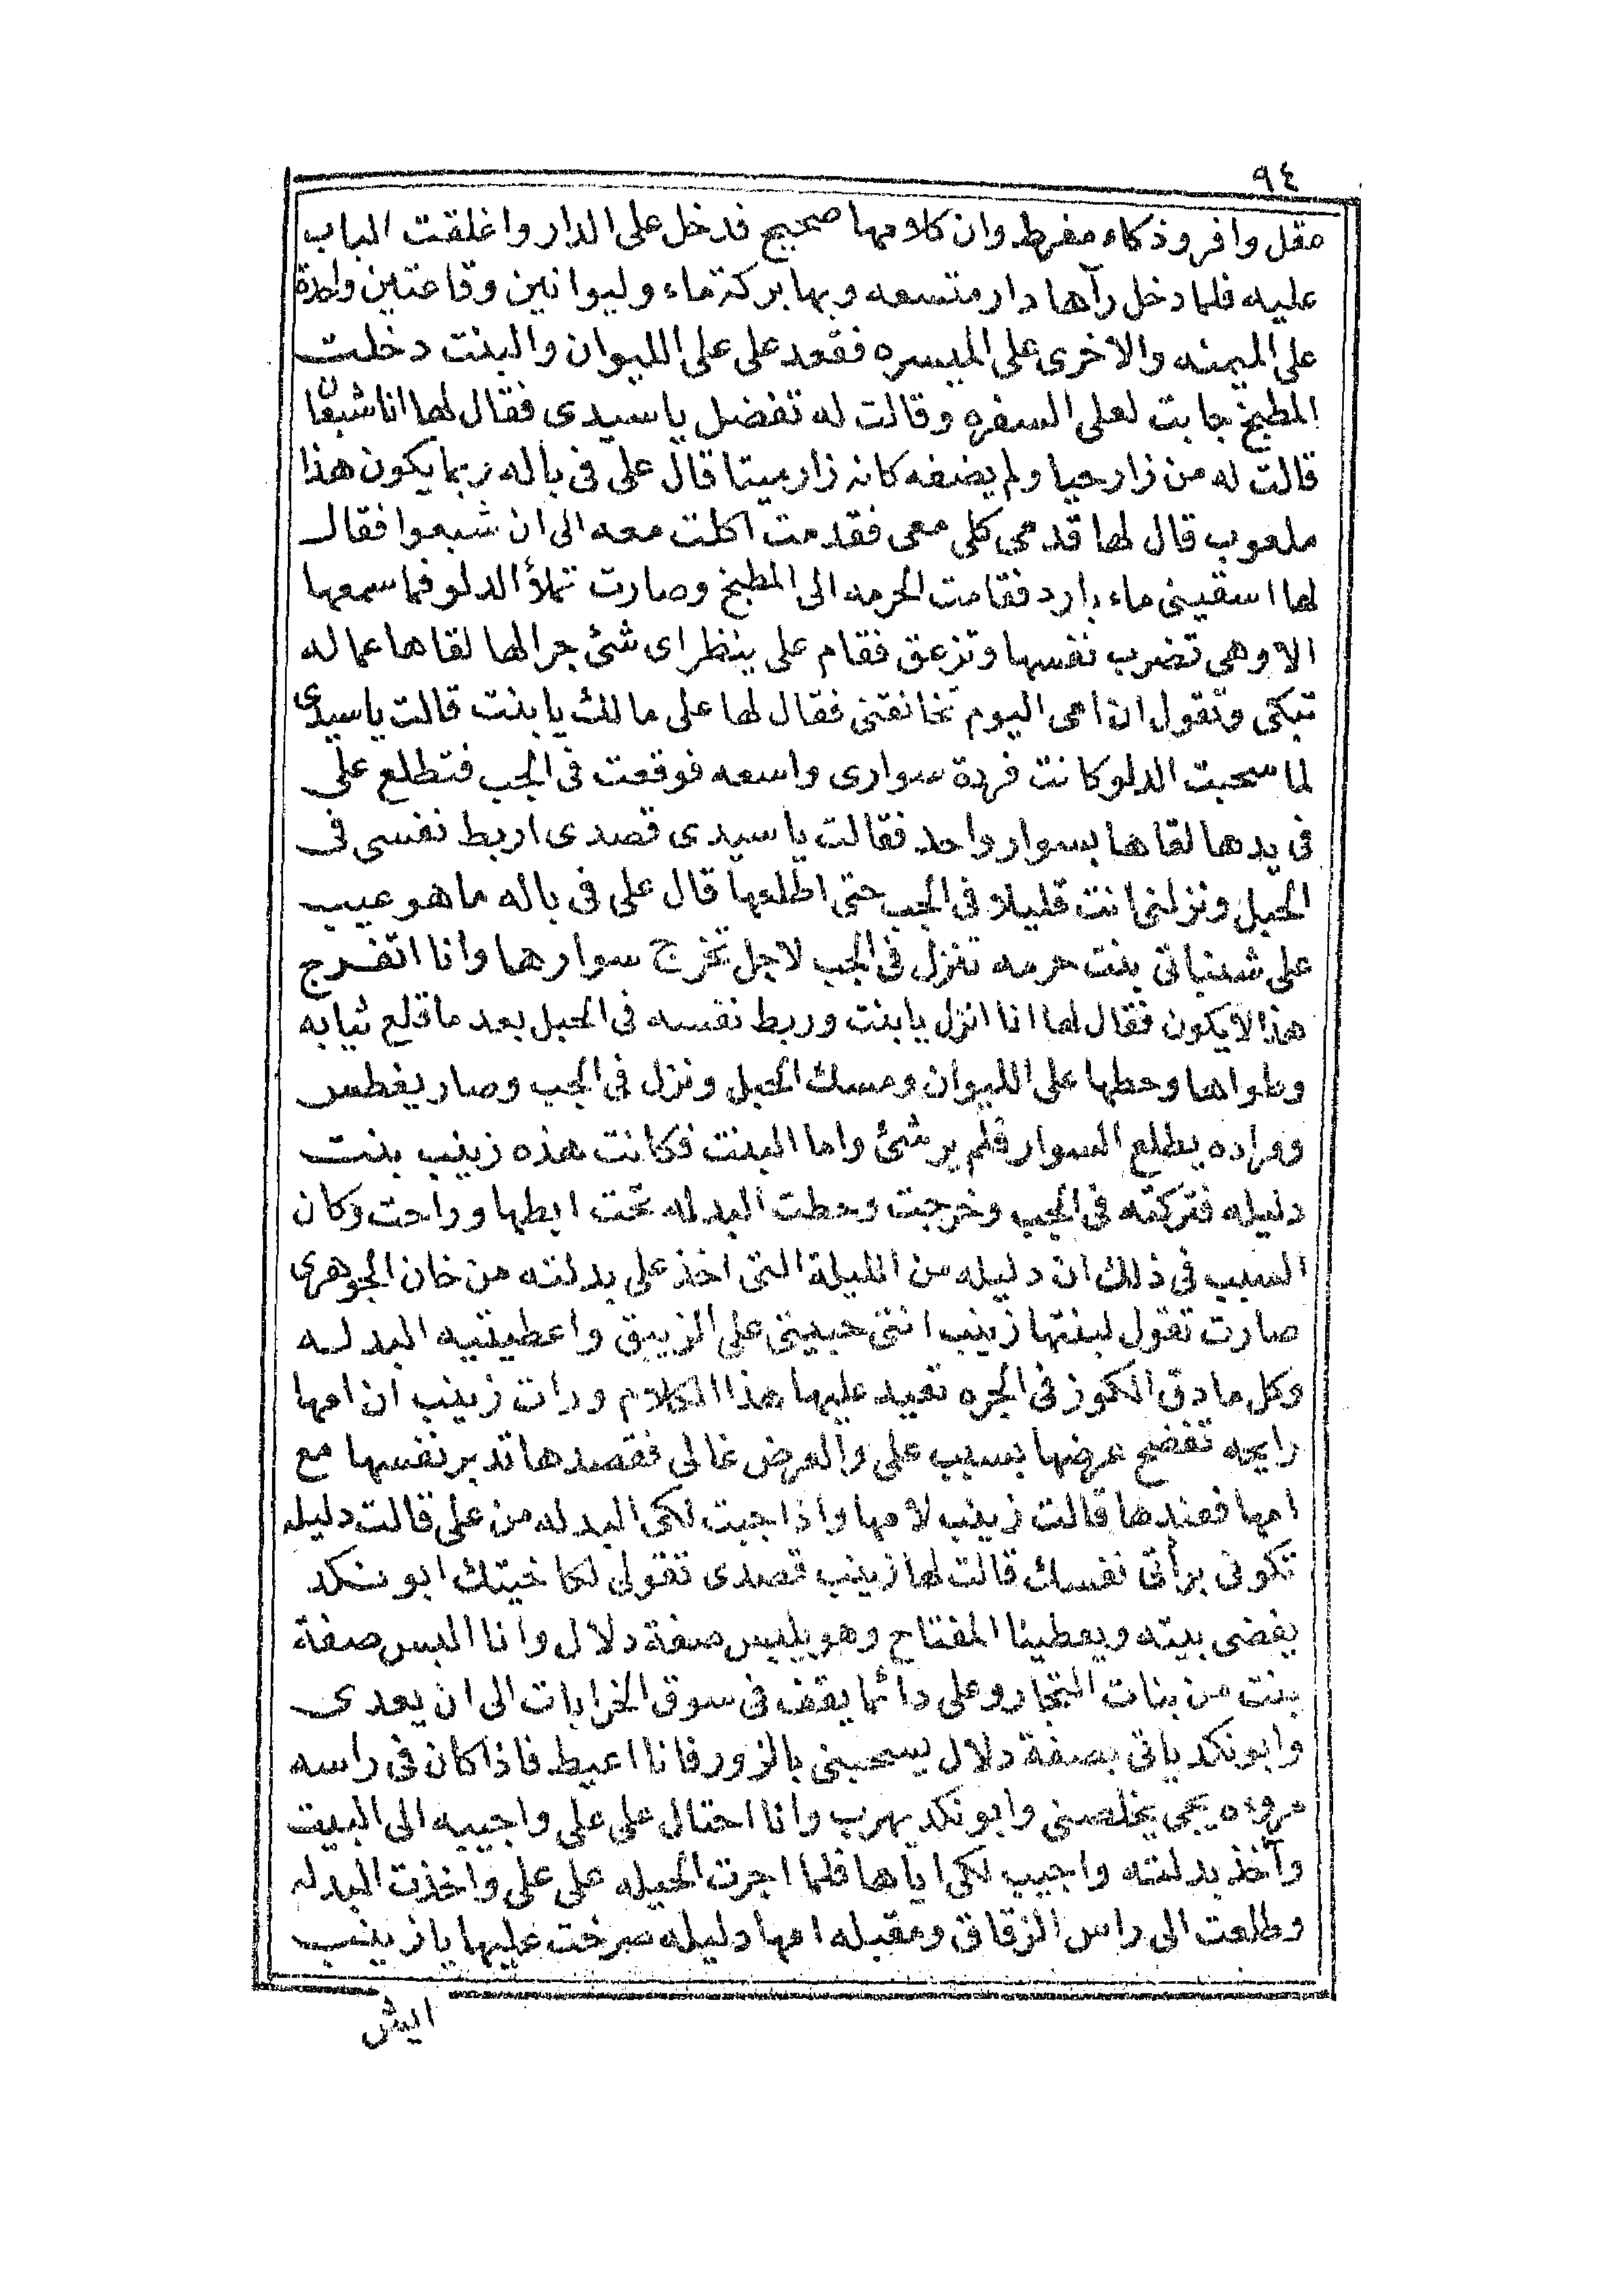 ٩٤
عقل وافر وذكاء مفرط وان كلامها صحيح فدخل على الدار واغلقت الباب
عليه فلما دخل رآها دار متسعه وبها بركة ماء وليوانين وقاعتين واحدة
على الميمنه والاخرى على الميسره فقعد على على الليوان والبنت دخلت
المطبخ جابت لعلى السفره وقالت له تفضل يا سيدى فقال لها انا شبعان
قالت له من زار حيا ولم يضفه كانه زار ميتا قال على فى باله ربما يكون هذا
ملعوب قال لها قدمى كلى معى فقدمت اكلت معه الى ان شبعوا فقال
لها اسقينى ماء بارد فقامت الحرمه الى المطبخ وصارت تملأ الدلو فما سمعها
الا وهى تضرب نفسها وتزعق فقام على ينظر اى شئ جرالها لقاها عماله
تبكى وتقول ان امى اليوم تخانقنى فقال لها على مالك يا بنت قالت يا سيدى
لما سحبت الدلو كانت فردة سوارى واسعه فوقعت فى الجب فتطلع على
فى يدها لقاها بسوار واحد فقالت يا سيدى قصدى اربط نفسى فى
الحبل ونزلنى انت قليلا فى الجب حتى اطلعها قال على فى باله ما هو عيب
على شنباتى بنت حرمه تنزل فى الجب لاجل تخرج سوارها وانا اتفرج
هذا لا يكون فقال لها انا انزل يا بنت وربط نفسه فى الحبل بعد ما قلع ثيابه
وطواها وحطها على الليوان ومسك الحبل ونزل فى الجب وصار يغطس
ومراده يطلع السوار فلم ير شئ واما البنت فكانت هذه زينب بنت
دليله فتركته فى الجب وخرجت وحطت البدله تحت ابطها وراحت وكان
السبب فى ذلك ان دليله من الليلة التى اخذ على بدلته من خان الجوهرى
صارت تقول لبنتها زينب انتى حبيتى على الزيبق واعطيتيه البدله
وكل ما دق الكوز فى الجره تعيد عليها هذا الكلام ورات زينب ان امها
رايحه تفضح عرضها بسبب على والعرض غالى فقصدها تدبر نفسها مع
امها فعندها قالت زينب لامها واذا جبت لكى البدله من على قالت دليله
تكونى برأتى نفسك قالت لها زينب قصدى تقولى لخا خيتك ابو نكد
يفضى بيته ويعطينا المفتاح وهو يلبس صفة دلال وانا البس صفة
بنت من بنات التجار وعلى دائما يقف فى سوق الخرابات الى ان يعدى
وابو نكد ياتى بصفة دلال يسحبنى بالزور فانا اعيط فاذا كان فى راسه
مروه يجى يخلصنى وابو نكد يهرب وانا احتال على على واجيبه الى البيت
وآخذ بدلته واجيب لكى اياها فلما اجرت الحيله على على واخذت البدله
وطلعت الى راس الزقاق ومقبله امها دليله صرخت عليها يا زينب
ايش